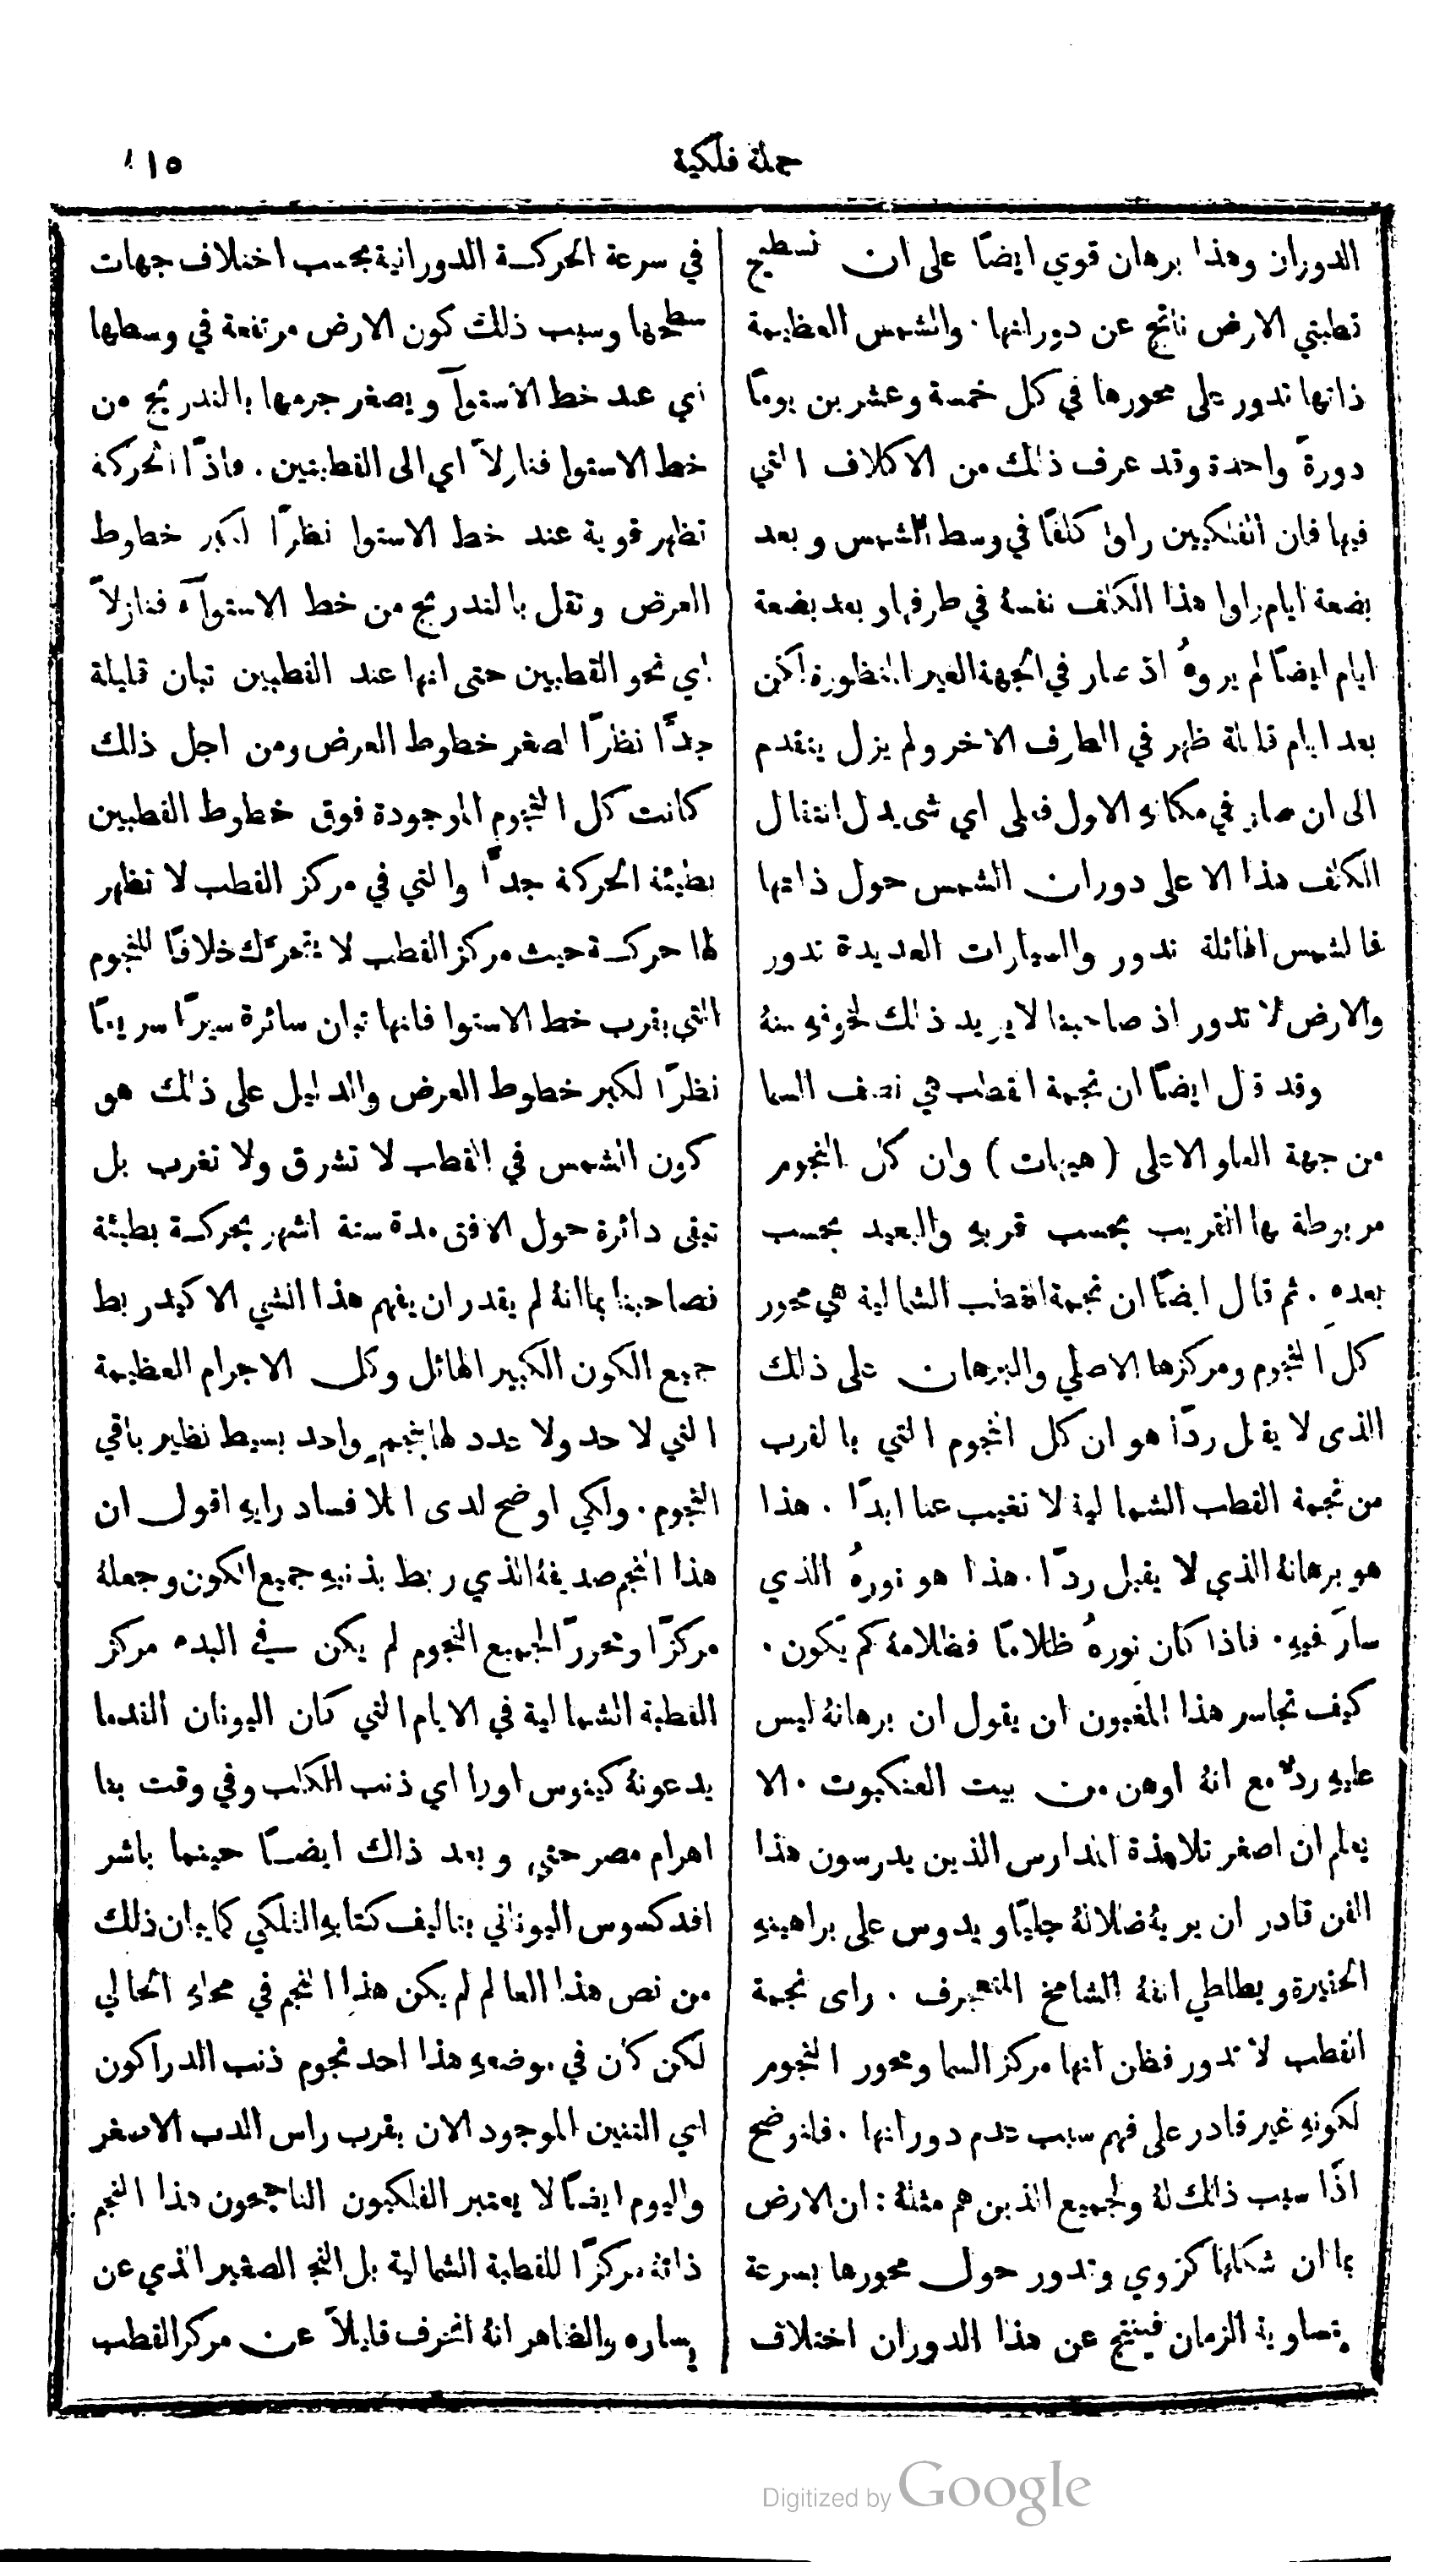 جملة فلكية
١١٥
الدوران وهذا برهان قوي ايضًا على ان تسطيح
قطبتي الارض ناتج عن دورانها · والشمس العظيمة
ذاتها تدور على محورها في كل خمسة وعشرين يومًا
دورةً واحدة وقد عرف ذلك من الاكلاف التي
فيها فان الفلكيين راوا كلفًا في وسط الشمس وبعد
بضعة ايام راوا هذا الكلف نفسهُ في طرفها وبعد بضعة
ايام ايضًا لم يروهُ اذ صار في الجهة الغير المنظورة لكن
بعد ايام قليلة ظهر في الطرف الاخر ولم يزل يتقدم
الى ان صار في مكانهِ الاول فعلى اي شي يدل انتقال
الكلف هذا الا على دوران الشمس حول ذاتها
فالشمس الهائلة تدور والسيارات العديدة تدور
والارض لا تدور اذ صاحبنا لا يريد ذلك لخوفهِ منهُ
وقد قال ايضًا ان نجمة القطب هي نصف السما
من جهة العلو الاعلى (هيهات) وان كل النجوم
مربوطة بها القريب بحسب قربهِ والبعيد بحسب
بعدهِ . ثم قال ايضًا ان نجمة القطب الشمالية هي محور
كل النجوم ومركزها الاصلي والبرهان على ذلك
الذى لا يقبل ردًّا هو ان كل النجوم التي بالقرب
من نجمة القطب الشمالية لا تغيب عنا ابدًا . هذا
هو برهانهُ الذي لا يقبل ردًّا . هذا هو نورهُ الذي
سارَ فيهِ . فاذا كان نورهُ ظلامًا فظلامهُ كم يكون .
كيف تجاسر هذا المغبون ان يقول ان برهانهُ ليس
عليهِ ردٌّ مع انهُ اوهن من بيت العنكبوت . الا
يعلم ان اصغر تلامذة المدارس الذين يدرسون هذا
الفن قادر ان يريهُ ضلالهُ جليًّا ويدوس على براهينهِ
الحقيرة ويطاطي انفهُ الشامخ المتعجرف . راى نجمة
القطب لا تدور فظن انها مركز السما ومحور النجوم
لكونهِ غير قادر على فهم سبب عدم دورانها . فلنوضح
اذًا سبب ذلك لهُ ولجميع الذين هم مثلهُ : ان الارض
بما ان شكلها كروي وتدور حول محورها بسرعة
متساوية الزمان فينتج عن هذا الدوران اختلاف
في سرعة الحركة الدورانية بحسب اختلاف جهات
سطحها وسبب ذلك كون الارض مرتفعة في وسطها
اي عند خط الاستوآ ويصغر جرمها بالتدريج من
خط الاستوا فنازلاً اي الى القطبتين . فاذًا الحركة
تظهر قوية عند خط الاستوا نظرًا لكبر خطوط
العرض وتقل بالتدريج من خط الاستوآء فنازلاً
اي نحو القطبين حتى انها عند القطبين تبان قليلة
جدًّا نظرًا لصغر خطوط العرض ومن اجل ذلك
كانت كل النجوم الموجودة فوق خطوط القطبين
بطيئة الحركة جدًّا والتي في مركز القطب لا تظهر
لها حركة حيث مركز القطب لا يتحرَّك خلافًا للنجوم
التي بقرب خط الاستوا فانها تبان سائرة سيرًا سريعًا
نظرًا لكبر خطوط العرض والدليل على ذلك هو
كون الشمس في القطب لا تشرق ولا تغرب بل
تبقى دائرة حول الافق مدة ستة اشهر بحركة بطيئة
فصاحبنا بما انهُ لم يقدر ان يفهم هذا الشي الا كيدربط
جميع الكون الكبير الهائل وكل الاجرام العظيمة
التي لا حد ولا عدد لها بنجمٍ واحد بسيط نظير باقي
النجوم . ولكي اوضح لدى الملا فساد رايهِ اقول ان
هذا النجم صديقهُ الذي ربط بذنبهِ جميع الكون وجعلهُ
مركزًا ومحورًا لجميع النجوم لم يكن في البدء مركز
القطبة الشمالية في الايام التي كان اليونان القدما
يدعونهُ كينوس اورا اي ذنب الكلب وفي وقت بنا
اهرام مصر حتى وبعد ذلك ايضًا حينما باشر
افدكسوس اليوناني بتاليف كتابهِ الفلكي كما يبان ذلك
من نص هذا العالم لم يكن هذا النجم في محلهِ الحالي
لكن كان في موضعهِ هذا احد نجوم ذنب الدراكون
اي التنين الموجود الان بقرب راس الدب الاصغر
واليوم ايضًا لا يعتبر الفلكيون الناجحون هذا النجم
ذاتهُ مركزًا للقطبة الشمالية بل النجم الصغير الذي عن
يساره والظاهر انهُ انحرف قليلاً عن مركز القطب
Digitized by Google